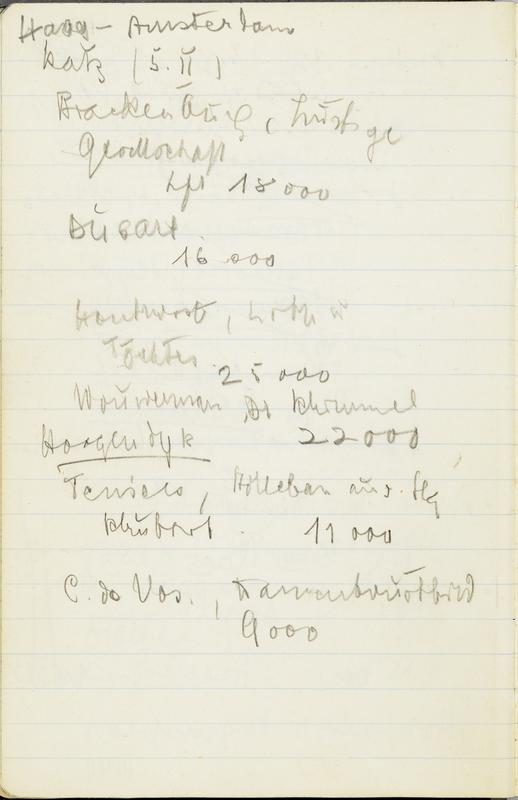 Haag – Amsterdam
Katz (5. II)
Brackenburg, Lustige
Gesellschaft
hfl 18 000
Dusart
16 000
Honthorst, Loth u
Töchter
25 000
Wouwerman, Dr Schimmel
Hoogendyk 22 000
Teniers, Höllebar aus. Slg
Schubart 11 000
C. de Vos., Damenbrustbild
9 000